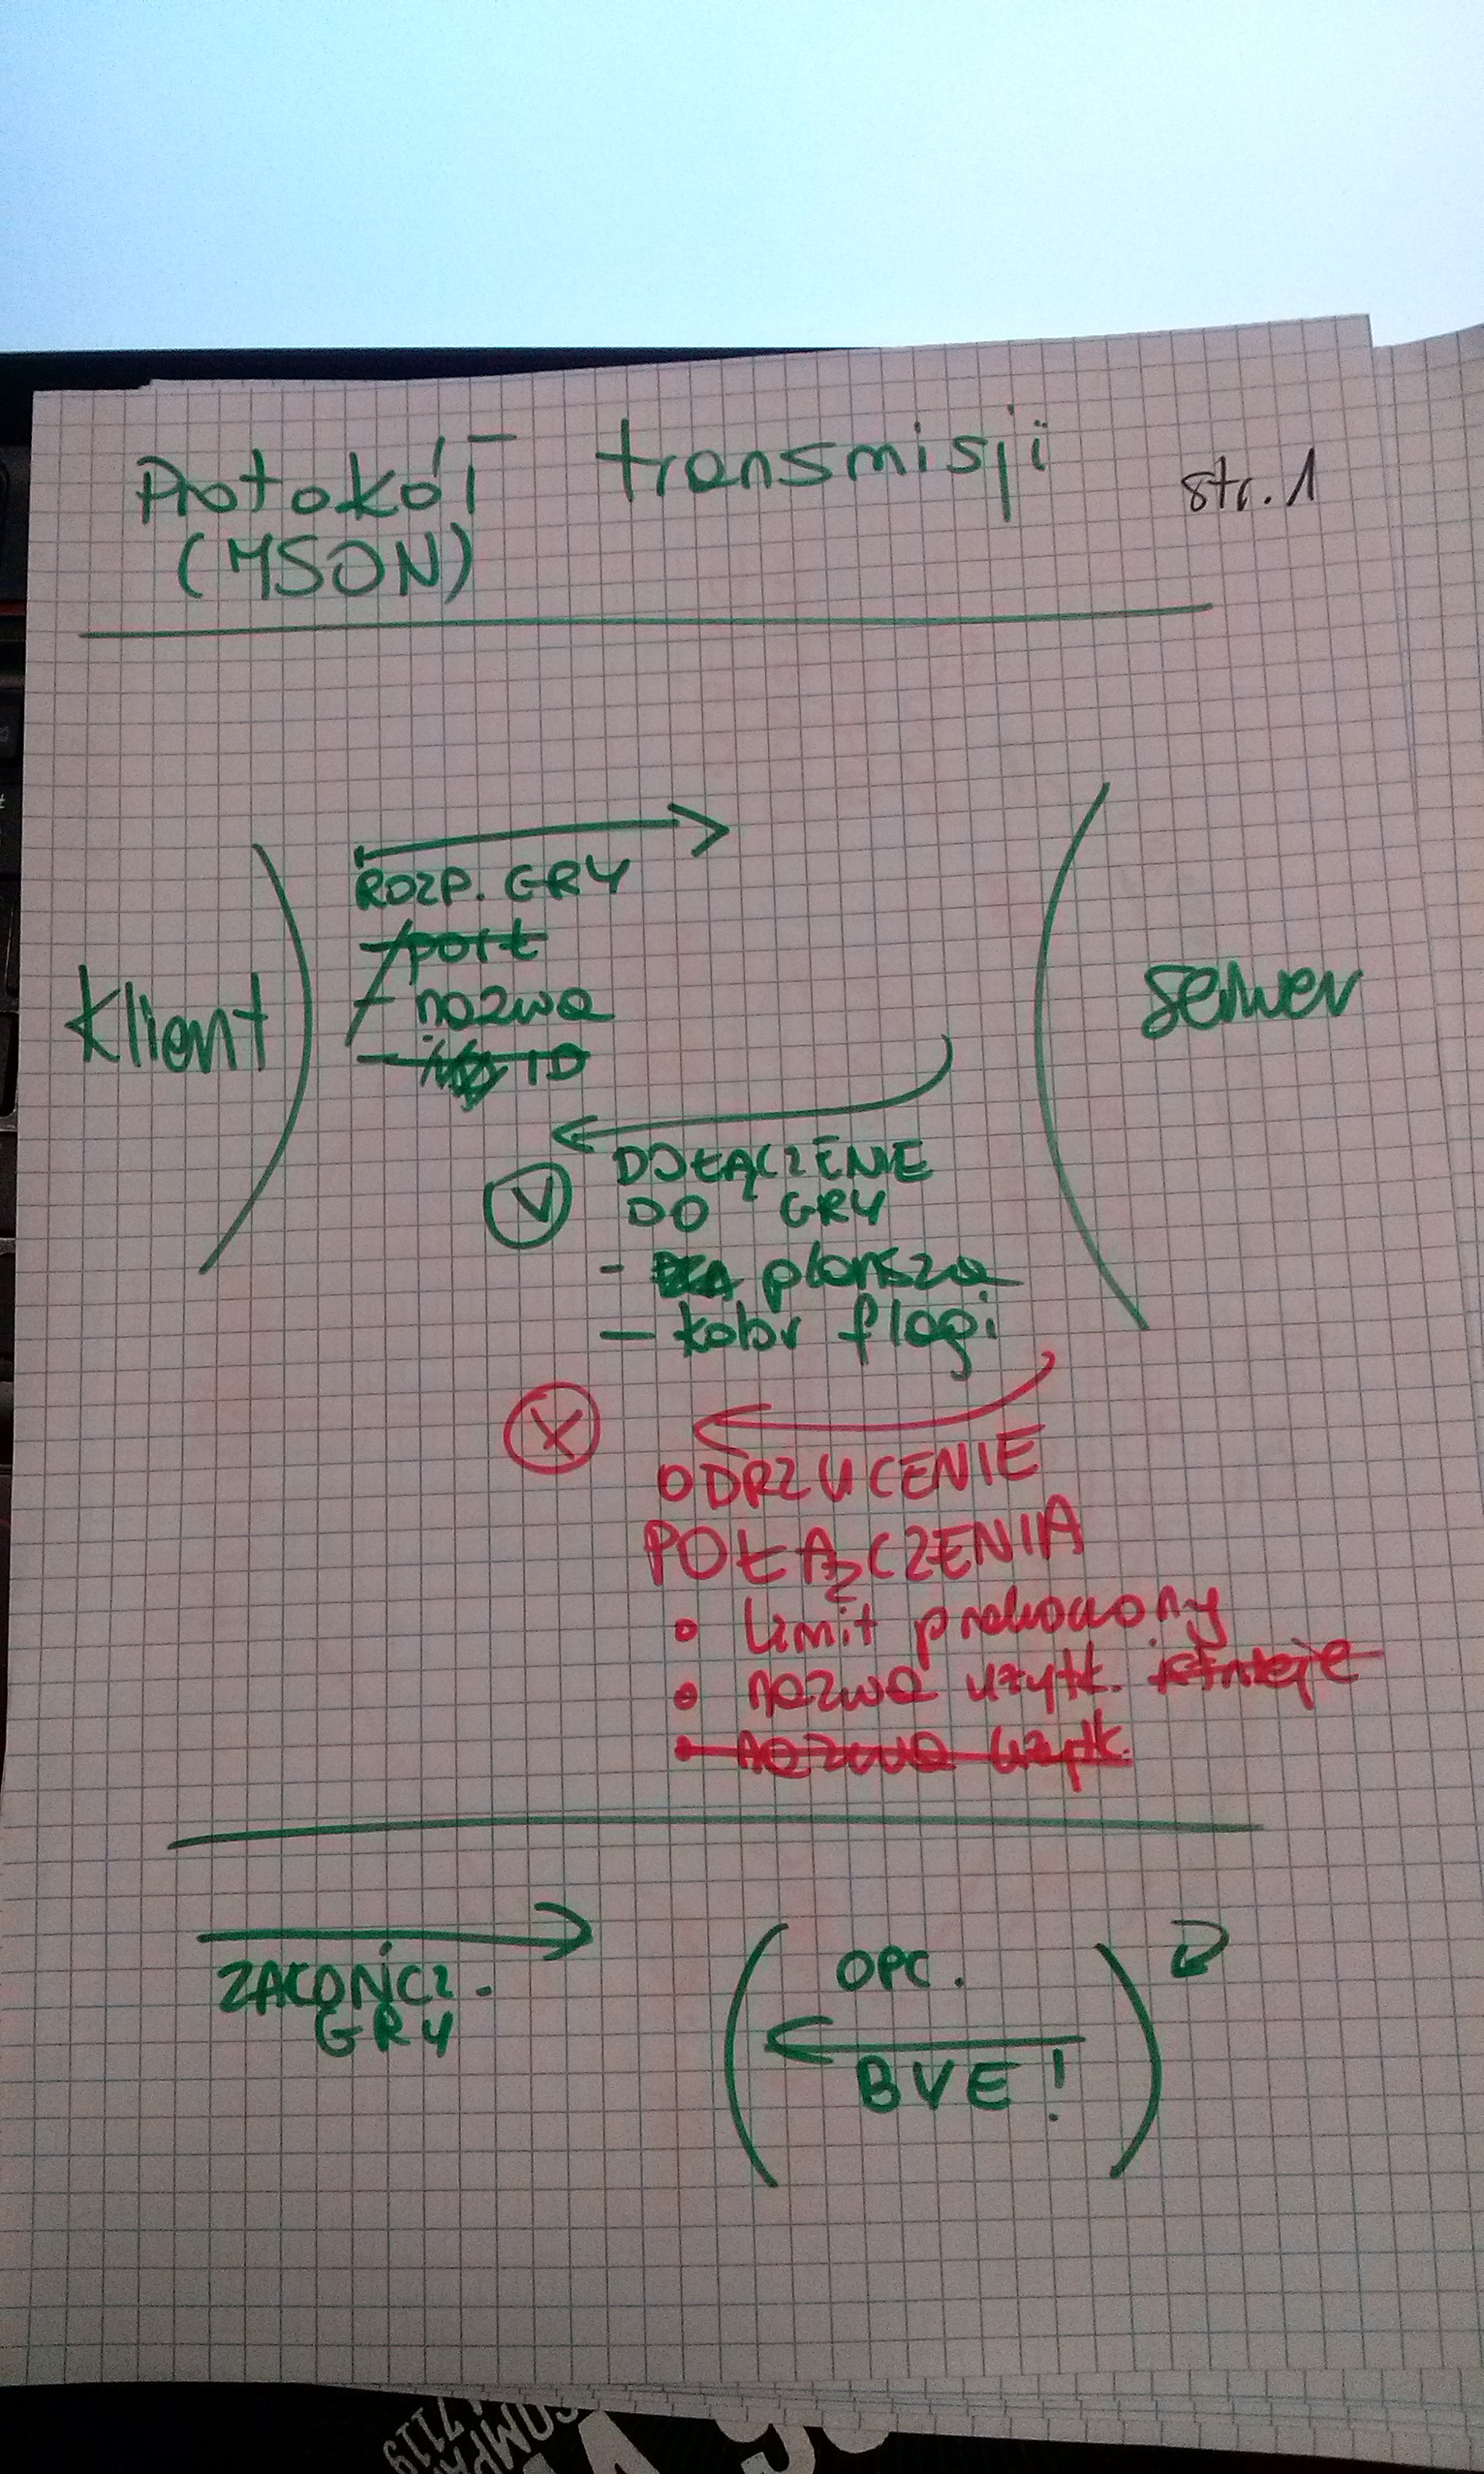 Protokół transmisji
str. 1
(YSON)
ROZP. GRY
port
- nazwa
ID
Klient
serwer
V
DOŁĄCZENIE
DO GRY
- plansza
- kolor flagi
X
ODRZUCENIE
POŁĄCZENIA
• limit przekroczony
• nazwa użytk. istnieje
• nazwa użytk.
ZAKOŃCZ.
GRY
OPC.
BYE!